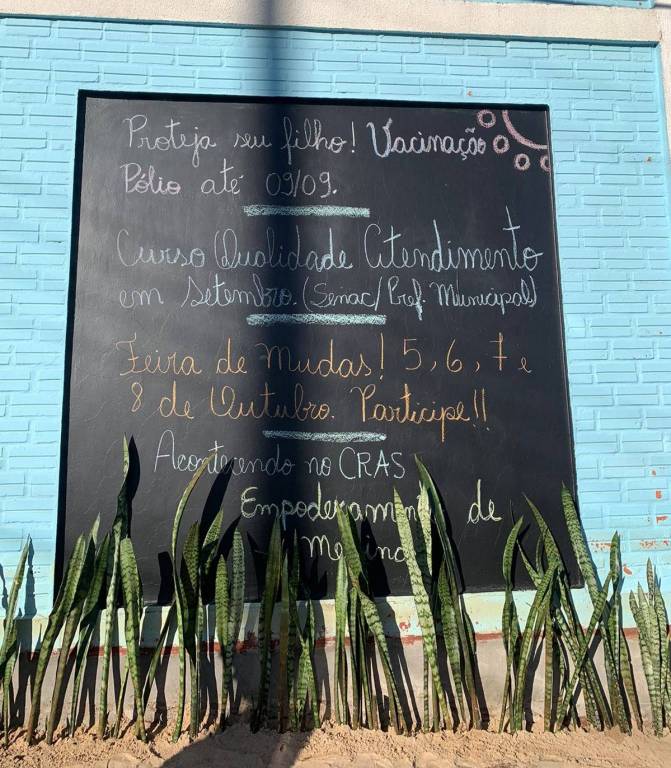 Proteja seu filho! Vacinação
Pólio até 09/09.
Curso Qualidade Atendimento
em Setembro. (Senac/Pref. Municipal)
Feira de Mudas! 5, 6, 7 e
8 de Outubro. Participe!!
Acontecendo no CRAS
Empoderamen de
Menina